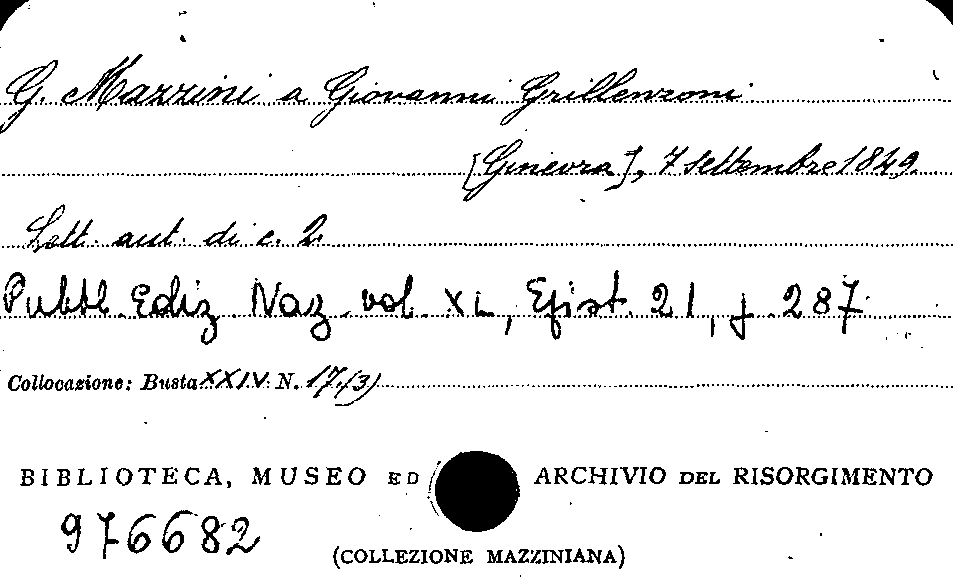 G. Mazzini a Giovanni Grillenzoni
[Ginevra], 7 settembre 1849.
Lett. aut. di c. 2.
Pubbl. Ediz. Naz. vol. XL, Epist. 21, p. 287
Collocazione: Busta XXIV. N. 17.(3)
BIBLIOTECA, MUSEO ED ARCHIVIO DEL RISORGIMENTO
976682
(COLLEZIONE MAZZINIANA)